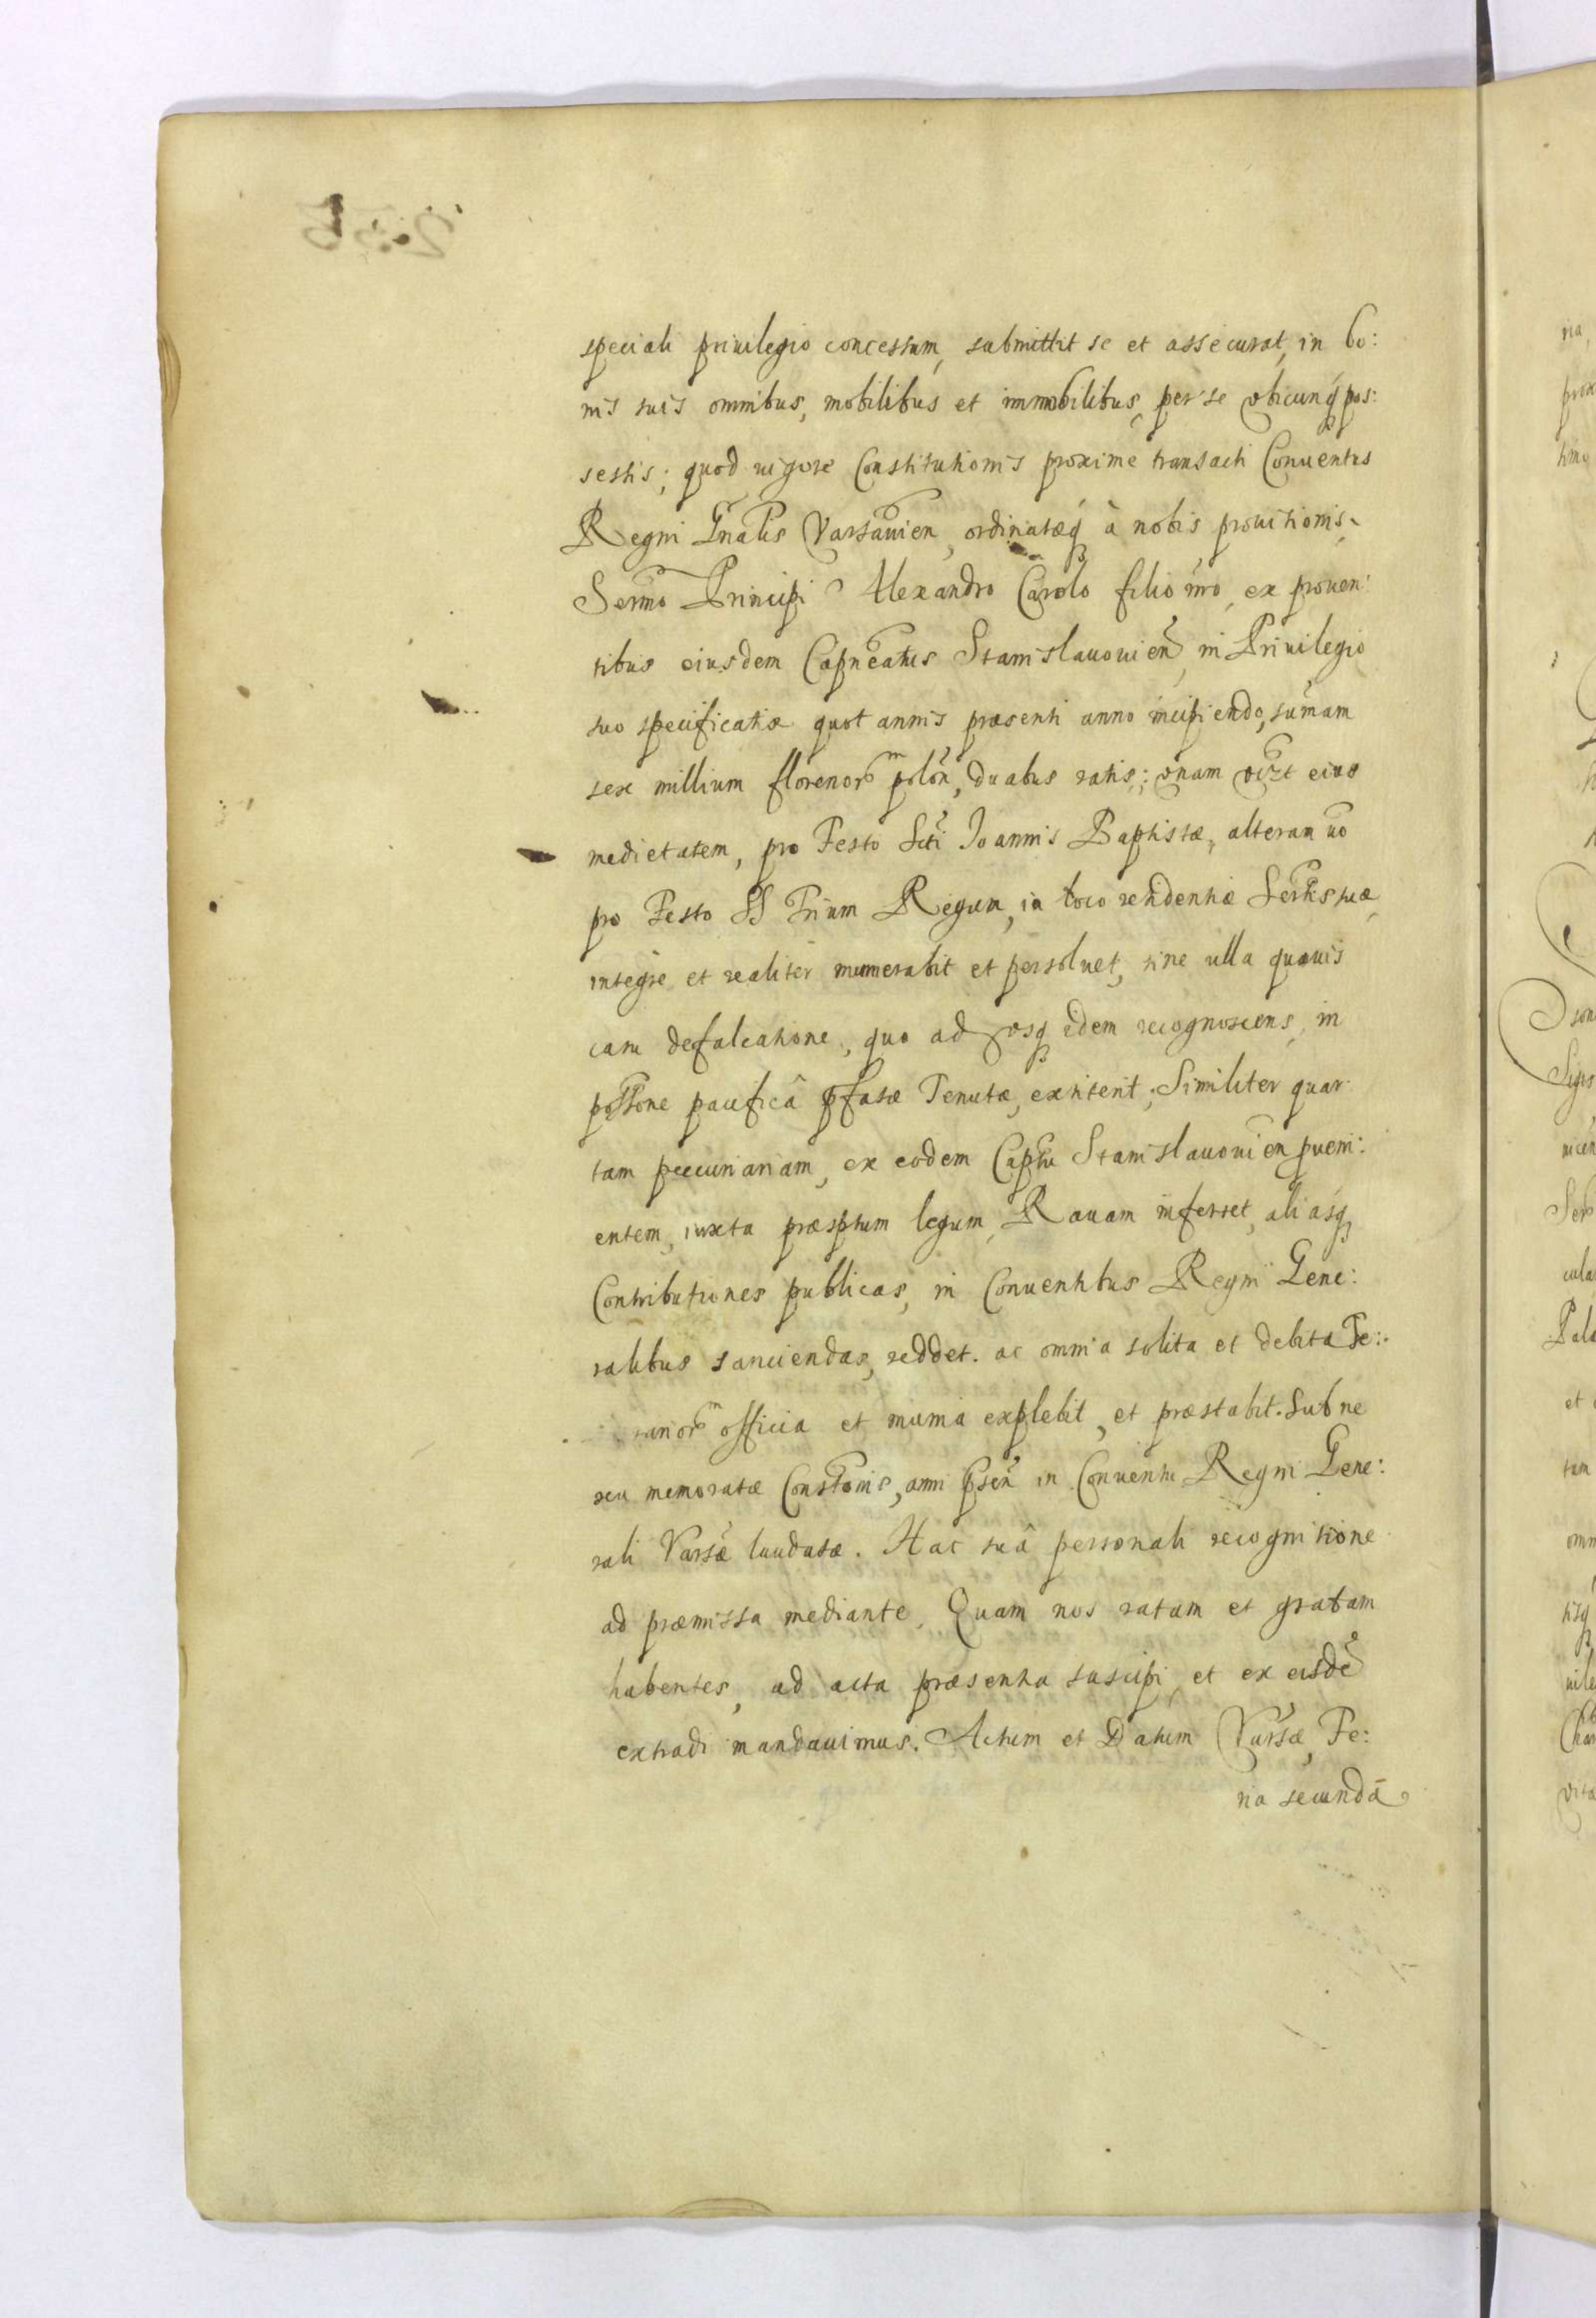 speciali priuilegio concessum, submittit se et assecurat, in bo:
nis suis omnibus, mobilibus et immobilibus, per se vbicunq pos:
sessis; quod vigore Constitutionis proxime transacti Conuentus
Regni Gnalis Varsauien, ordinatæq à nobis prouisionis,
Sermo Principi Alexandro Carolo filio nro, ex prouen:
tibus eiusdem Capneatus Stanislauouien, in Priuilegio
suo specificatis quot annis præsenti anno incipiendo, sumam
sex millium florenor polon, duabus ratis; vnam vizt eius
medietatem, pro Festo Scti Ioannis Baptistæ, alteram uo
pro Festo SS Trium Regum, in loco residentiæ Sertis suæ,
integre et realiter numerabit et persoluet, sine ulla quauis
eam defalcatione, quo ad vsq idem recognoscens, in
possone pacificâ pfatæ Tenutæ, extiterit; Similiter quar
tam pecuniariam, ex eodem Captu Stanislauouien pueni:
entem, iuxta præsptum legum, Rauam inferret, aliasq
Contributiones publicas, in Conuentibus Regni Gene:
ralibus sanciendas, reddet. ac omnia solita et debita Te:
nutor officia et munia explebit, et præstabit. Sub ne
xu memoratæ Constonis, anni psen in Conuentu Regni Gene:
rali Varsæ laudatæ. Hac suâ personali recognitione
ad præmissa mediante. Quam nos ratam et gratam
habentes, ad acta præsentia suscipi, et ex eisdē
extradi mandauimus. Actum et Datum Varsæ, Fe:
ria secundâ